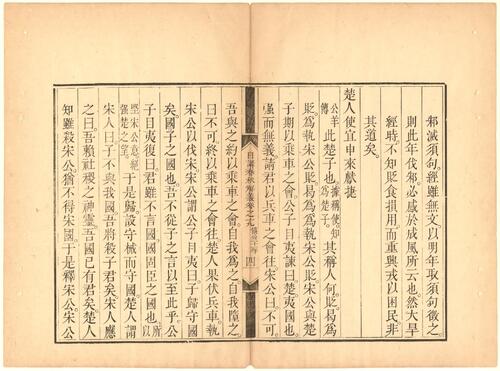 邾滅須句經雖無文以明年取須句徵之
則此年伐邾必感於成風所云也然大旱
經時不知貶食損用而重興戎以困民非
其道矣
楚人使宜申來獻捷
公羊傳此楚子也據稱使知為楚子其稱人何貶曷為
貶為執宋公貶曷為為執宋公貶宋公與楚
子期以乘車之會公子目夷諫曰楚夷國也
彊而無義請君以兵車之會往宋公曰不可
日講春秋解義卷之
吾與之約以乘車之會自我為之自我墮之
曰不可終以乘車之會往楚人果伏兵車執
宋公以伐宋宋公謂公子目夷曰子歸守國
矣國子之國也吾不從子之言以至此乎公
子目夷復曰君雖不言國國固臣之國也所以
堅宋公意絕彊楚之望于是歸設守械而守國楚人謂
宋人曰子不與我國吾將殺子君矣宋人應
之曰吾賴社稷之神靈吾國已有君矣楚人
知雖殺宋公猶不得宋國于是釋宋公宋公